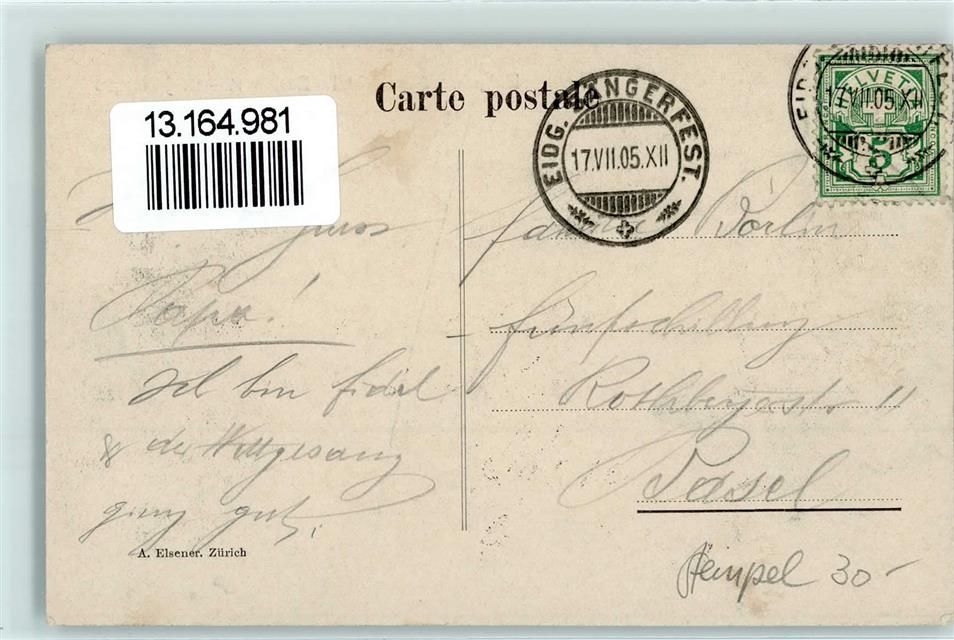 Carte postale
13.164.981
EIDG. SÄNGERFEST.
17.VII.05.XII
EIDG.
17.VII.05.XII
HELVETIA
5
Gruss
Papa!
Ich bin fidel
& der Wettgesang
ging gut.
Familie
Fünfschilling
Rothbergerstr 11
Basel
A. Elsener. Zürich
Stempel 30-